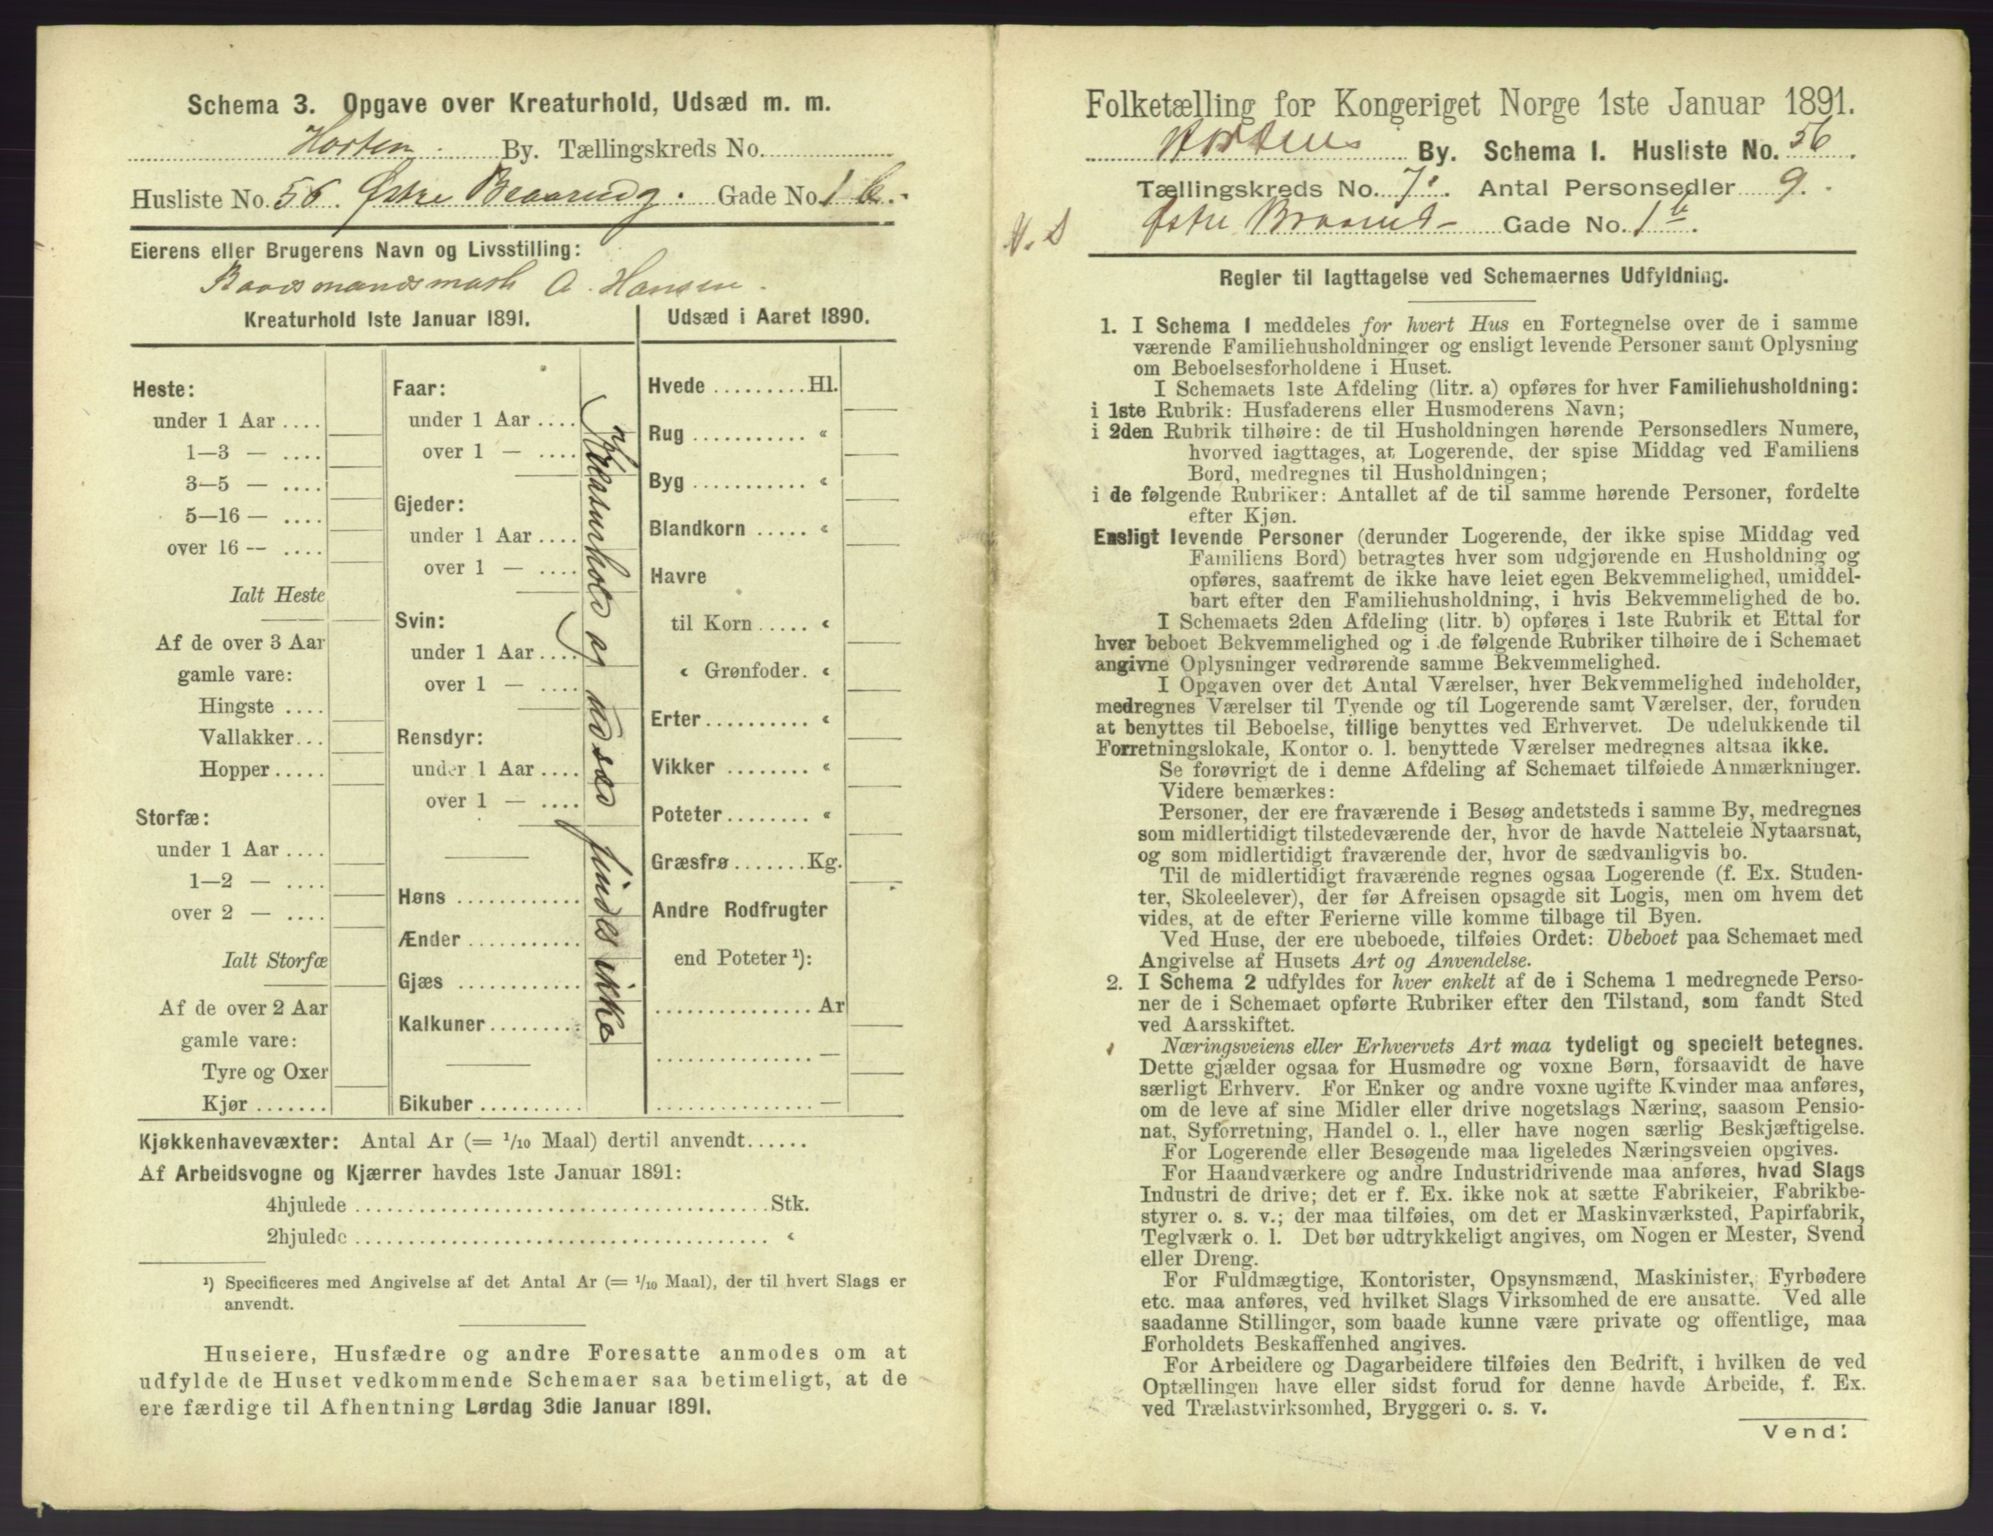 Schema 3. Opgave over Kreaturhold, Udsæd m. m.
Horten. By. Tællingskreds No.
Husliste No. 56. Østre Braarudg. Gade No. 1 b.
Eierens eller Brugerens Navn og Livsstilling:
Baadsmandsmath A. Hansen.
Kreaturhold 1ste Januar 1891.
Heste:
under 1 Aar ....
1—3 — ....
3—5 — ....
5—16 — ....
over 16 — ....
Ialt Heste
Af de over 3 Aar
gamle vare:
Hingste ....
Vallakker...
Hopper.....
Storfæ:
under 1 Aar ....
1—2 — ....
over 2 — ....
Ialt Storfæ
Af de over 2 Aar
gamle vare:
Tyre og Oxer
Kjør .......
Faar:
under 1 Aar ....
over 1 — ....
Gjeder:
under 1 Aar ....
over 1 — ....
Svin:
under 1 Aar ....
over 1 — ....
Rensdyr:
under 1 Aar ....
over 1 — ....
Høns ............
Ænder ...........
Gjæs ............
Kalkuner.........
Bikuber ..........
Kreaturhold og udsæd findes ikke
Udsæd i Aaret 1890.
Hvede .........Hl.
Rug ........... “
Byg ........... “
Blandkorn ..... “
Havre
til Korn ..... “
“ Grønfoder. “
Erter.......... “
Vikker ........ “
Poteter........ “
Græsfrø.......Kg.
Andre Rodfrugter
end Poteter ¹):
............... Ar
............... —
............... —
Kjøkkenhavevæxter: Antal Ar (= 1/10 Maal) dertil anvendt......
Af Arbeidsvogne og Kjærrer havdes 1ste Januar 1891:
4hjulede ..................................... Stk.
2hjulede ..................................... “
¹) Specificeres med Angivelse af det Antal Ar (= 1/10 Maal), der til hvert Slags er
anvendt.
Huseiere, Husfædre og andre Foresatte anmodes om at
udfylde de Huset vedkommende Schemaer saa betimeligt, at de
ere færdige til Afhentning Lørdag 3die Januar 1891.
Folketælling for Kongeriget Norge 1ste Januar 1891.
Hortens By. Schema 1. Husliste No. 56.
Tællingskreds No. 7. Antal Personsedler 9.
Østre Braarud- Gade No. 1 b.
Regler til Iagttagelse ved Schemaernes Udfyldning.
1. I Schema 1 meddeles for hvert Hus en Fortegnelse over de i samme
værende Familiehusholdninger og ensligt levende Personer samt Oplysning
om Beboelsesforholdene i Huset.
I Schemaets 1ste Afdeling (litr. a) opføres for hver Familiehusholdning:
i 1ste Rubrik: Husfaderens eller Husmoderens Navn;
i 2den Rubrik tilhøire: de til Husholdningen hørende Personsedlers Numere,
hvorved iagttages, at Logerende, der spise Middag ved Familiens
Bord, medregnes til Husholdningen;
i de følgende Rubriker: Antallet af de til samme hørende Personer, fordelte
efter Kjøn.
Ensligt levende Personer (derunder Logerende, der ikke spise Middag ved
Familiens Bord) betragtes hver som udgjørende en Husholdning og
opføres, saafremt de ikke have leiet egen Bekvemmelighed, umiddel-
bart efter den Familiehusholdning, i hvis Bekvemmelighed de bo.
I Schemaets 2den Afdeling (litr. b) opføres i 1ste Rubrik et Ettal for
hver beboet Bekvemmelighed og i de følgende Rubriker tilhøire de i Schemaet
angivne Oplysninger vedrørende samme Bekvemmelighed.
I Opgaven over det Antal Værelser, hver Bekvemmelighed indeholder,
medregnes Værelser til Tyende og til Logerende samt Værelser, der, foruden
at benyttes til Beboelse, tillige benyttes ved Erhvervet. De udelukkende til
Forretningslokale, Kontor o. l. benyttede Værelser medregnes altsaa ikke.
Se forøvrigt de i denne Afdeling af Schemaet tilføiede Anmærkninger.
Videre bemærkes:
Personer, der ere fraværende i Besøg andetsteds i samme By, medregnes
som midlertidigt tilstedeværende der, hvor de havde Natteleie Nytaarsnat,
og som midlertidigt fraværende der, hvor de sædvanligvis bo.
Til de midlertidigt fraværende regnes ogsaa Logerende (f. Ex. Studen-
ter, Skoleelever), der før Afreisen opsagde sit Logis, men om hvem det
vides, at de efter Ferierne ville komme tilbage til Byen.
Ved Huse, der ere ubeboede, tilføies Ordet: Ubeboet paa Schemaet med
Angivelse af Husets Art og Anvendelse.
2. I Schema 2 udfyldes for hver enkelt af de i Schema 1 medregnede Perso-
ner de i Schemaet opførte Rubriker efter den Tilstand, som fandt Sted
ved Aarsskiftet.
Næringsveiens eller Erhvervets Art maa tydeligt og specielt betegnes.
Dette gjælder ogsaa for Husmødre og voxne Børn, forsaavidt de have
særligt Erhverv. For Enker og andre voxne ugifte Kvinder maa anføres,
om de leve af sine Midler eller drive nogetslags Næring, saasom Pensio-
nat, Syforretning, Handel o. l., eller have nogen særlig Beskjæftigelse.
For Logerende eller Besøgende maa ligeledes Næringsveien opgives.
For Haandværkere og andre Industridrivende maa anføres, hvad Slags
Industri de drive; det er f. Ex. ikke nok at sætte Fabrikeier, Fabrikbe-
styrer o. s. v.; der maa tilføies, om det er Maskinværksted, Papirfabrik,
Teglværk o. l. Det bør udtrykkeligt angives, om Nogen er Mester, Svend
eller Dreng.
For Fuldmægtige, Kontorister, Opsynsmænd, Maskinister, Fyrbødere
etc. maa anføres, ved hvilket Slags Virksomhed de ere ansatte. Ved alle
saadanne Stillinger, som baade kunne være private og offentlige, maa
Forholdets Beskaffenhed angives.
For Arbeidere og Dagarbeidere tilføies den Bedrift, i hvilken de ved
Optællingen have eller sidst forud for denne havde Arbeide, f. Ex.
ved Trælastvirksomhed, Bryggeri o. s. v.
Vend!